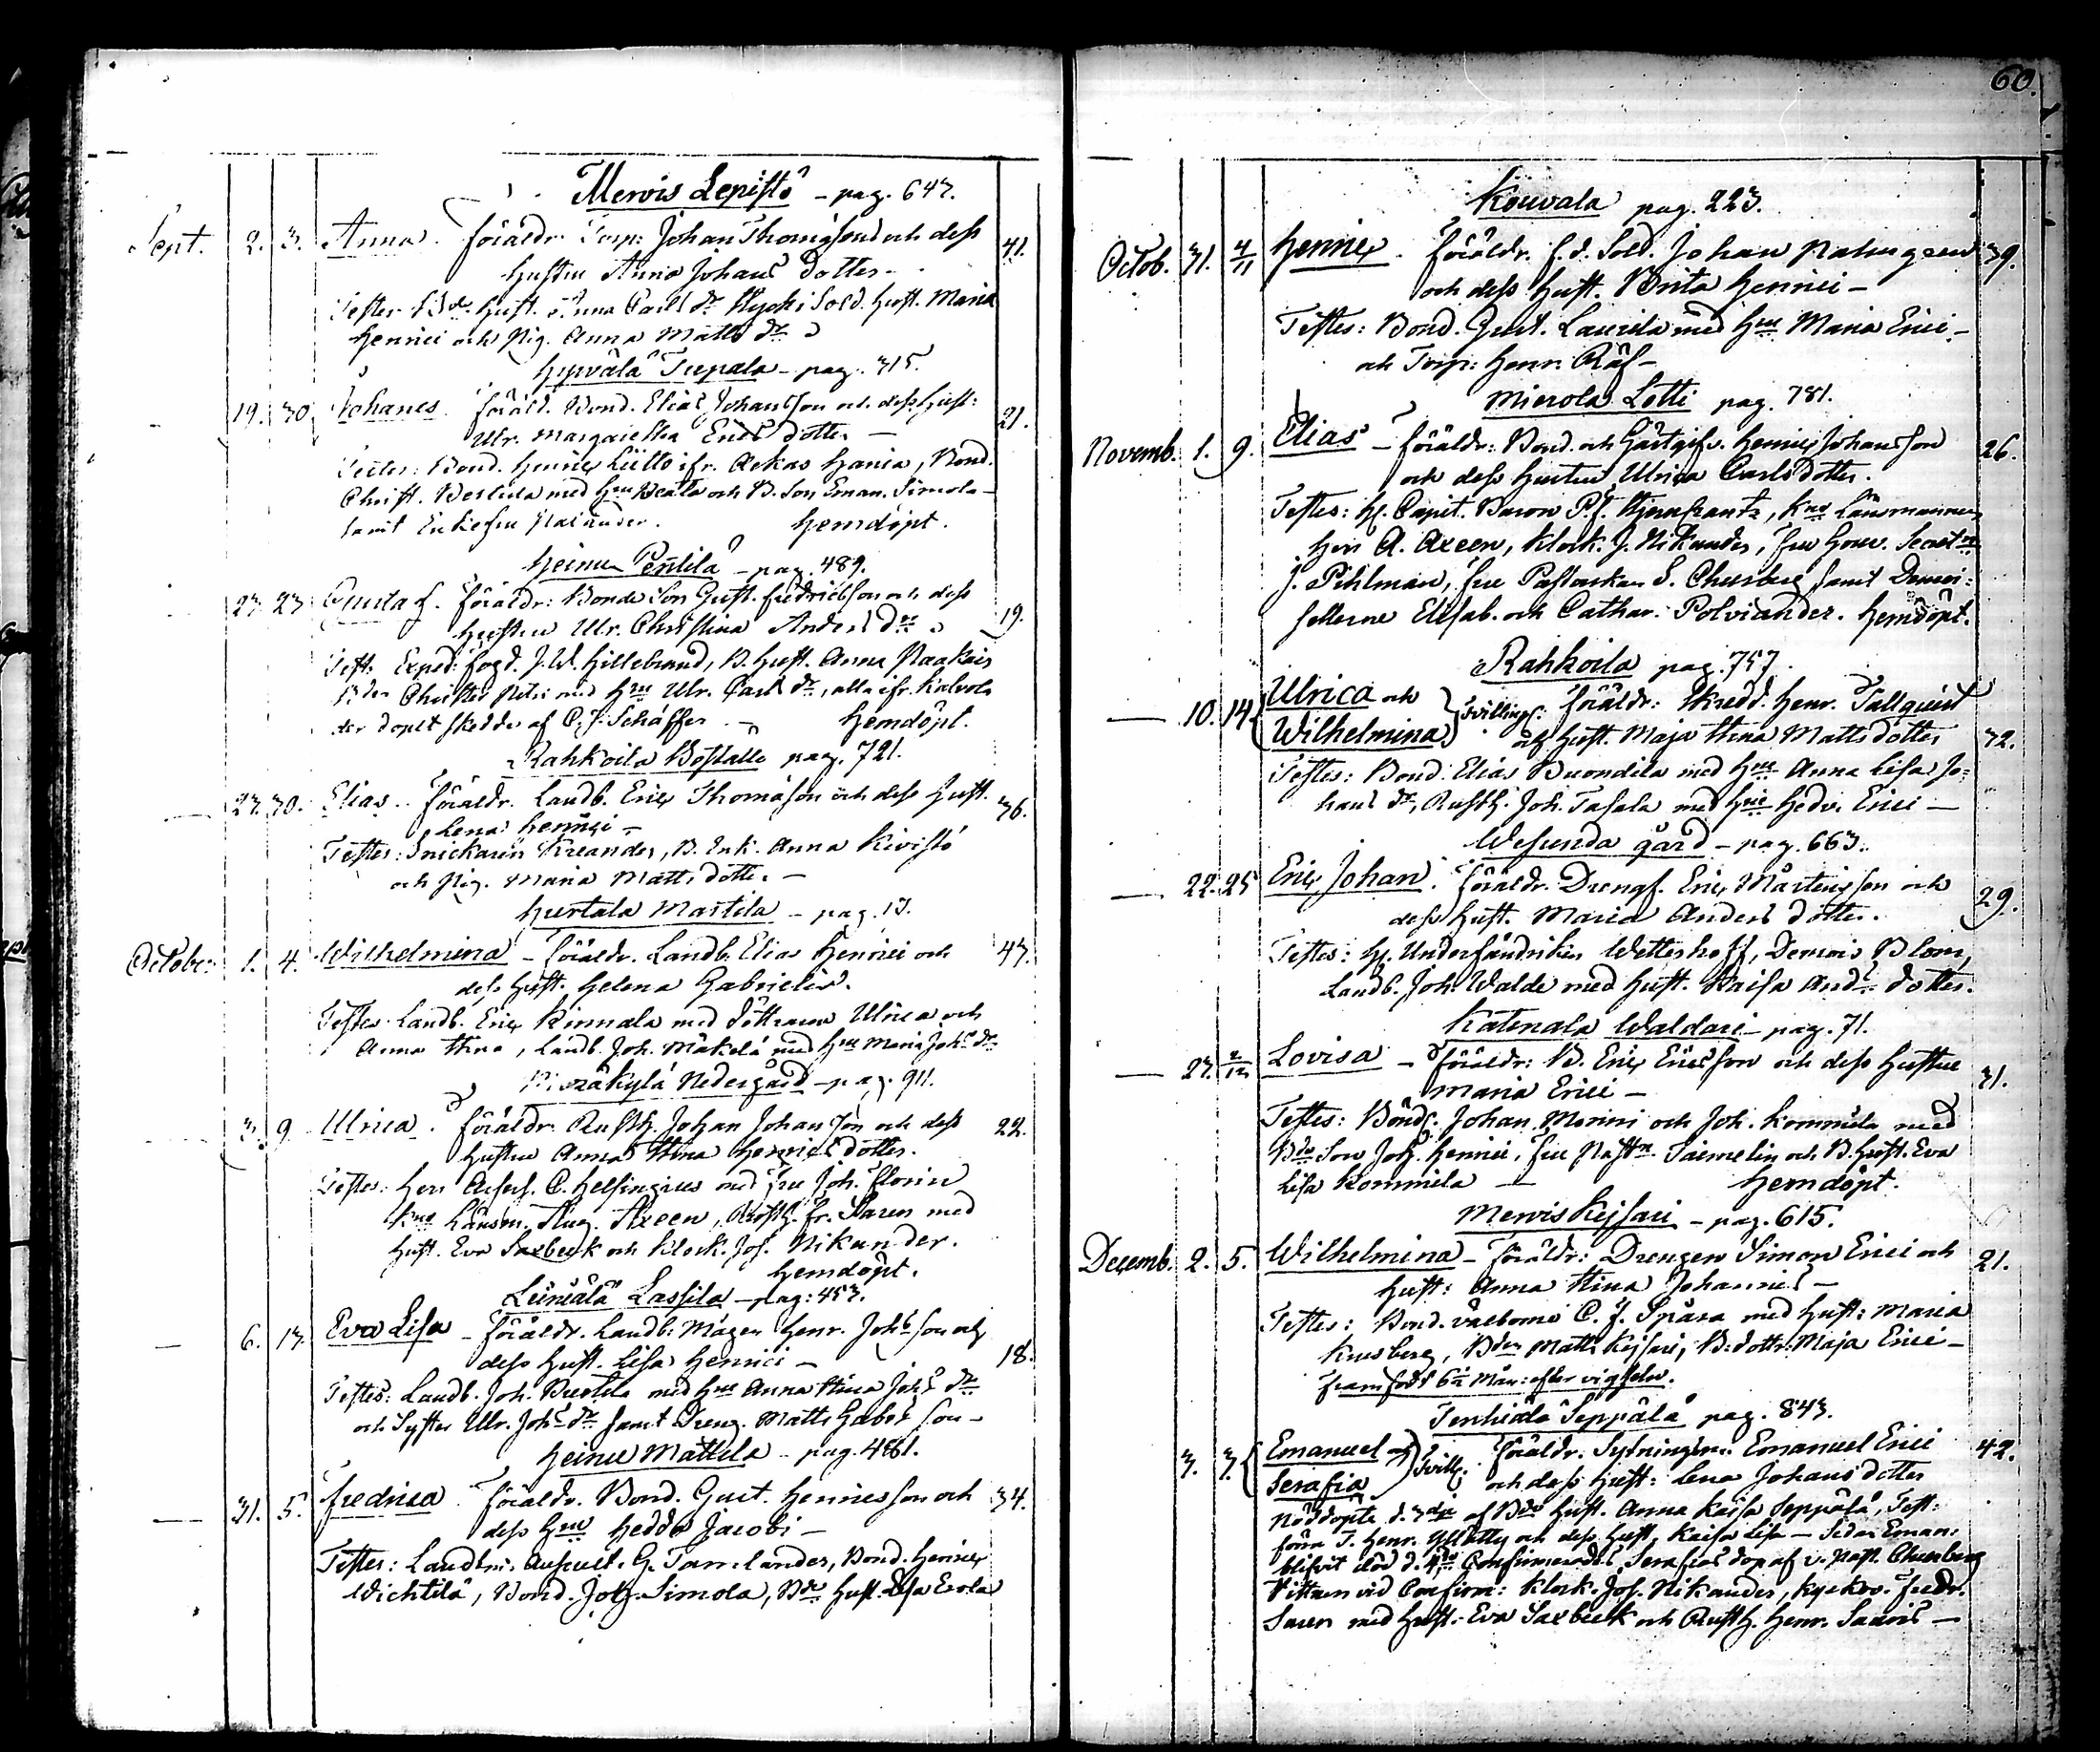 60.
Merois Lepistö - pag. 643.
Sept. 2. 3. Anna. Föräldr. Torp: Johan Thomasson och dess 41.
hustru Anna Johans dotter -
Testes: Hust. Anna Carls dr Sold. Hust. Maria
Henrici och Pig. Anna Matts dr
Hyvälä Tupala - pag. 315.
19. 30. Johanes. Föräld. Bond. Elias Johansson och dess Hust: 21.
Ulr. Margaretha Erics dotter -
Testes: Bond. Henric ifr. Hania, Bond.
Christ. med Hru Beata och B. Son Eman. Simola -
samt Enkefru Hemdöpt.
Heinu Pentilä - pag. 489.
23. 23. Gustaf. Föräldr: Bonde Son Gust. Fredricsson och dess 19.
hustru Ulr. Christina Anders dr
Test. Exped: fogd. J. W. Hillebrand, B. Hust. Anna
Christer med Hru Ulr. Carls dr, alla ifr. Kalvola
der döpelt skedde af C. J. Schäffer. - Hemdöpt.
Rahkoila Boställe pag. 721.
23. 30. Elias. Föräldr. Landb. Eric Thomasson och dess Hust. 36.
Lena Henrici -
Testes: Snickaren Kreander, B. Enk. Anna Kivistö
och Pig. Maria Matts dotter -
Hurtala Mastila - pag. 13.
October 1. 4. Wilhelmina - Föräldr. Landb. Elias Henrici och 43.
dess Hust. Helena Gabrielis.
Testes: Landb. Eric Kinnala med döttrarna Ulrica och
Anna Stina, Landb. Joh. Mäkelä med Hru Maria Johs dr
Nedergård - pag. 911.
3. 9. Ulrica. Föräldr. Rusth. Johan Johansson och dess 22.
hustru Anna Stina Henrics dotter.
Testes: Herr C. Helsingius med Fru Joh. Florin
Kno Länsm. Aug. Axeen, Rusth. Fr. Saren med
Hust. Eva Saxbeck och Klock. Jos. Nikander.
Hemdöpt.
Leiniälä Lassila - pag: 453.
- 6. 13. Eva Lisa - Föräldr. Landb: Mågen Henr. Johs son och 18.
dess Hust. Lisa Henrici -
Testes: Landb. Joh. med Hru Anna Stina Johs dr
och Syster Ulr. Johs dr samt Dreng. Matts Gabr. son -
Heinu Mattila - pag. 481.
- 31. 5. Fredrica. Föräldr. Bond. Gust. Henricsson och 34.
dess Hru Hedda Jacobi -
Testes: Landtm. G. Tamelander, Bond. Henric
Wichtilä, Bond. Joh. Simola, Bde Hust. Lisa Erola
Kouvala pag. 223.
Octob. 31. 4/11 Henric. Föräldr. f.d. Sold. Johan Palmgren 39.
och dess Hust. Brita Henrici -
Testes: Bond. Gust. Laurila med Hru Maria Erici -
och Torp: Henr. Räf -
Mierola Lotti pag. 781.
Novemb. 1. 9. Elias - Föräldr: Bond. och Gästgifv. Henric Johansson 26.
och dess hustru Ulrica Carls dotter.
Testes: H. Capit. Baron P. J. Stjernkrantz, Kno Länsmannen
Herr A. Axeen, Klock. J. Nikander, Fru Gouv. Secret.
J. Pihlman, Fru Pastorskan S. Chersberg samt Demoi-
sellerne Elisab. och Cathar. Polviander. Hemdöpt.
Rahkoila pag. 757.
- 10. 14 Ulrica och Wilhelmina } Tvilling. Föräldr: Skredd. Henr. Tallquist
och Hust. Maja Stina Matts dotter 32.
Testes: Bond. Elias med Hru Anna Lisa Jo-
hans dr, Rusth. Joh. Tasala med Hru Hedv. Erici -
Wesunda gård - pag. 663.
- 22. 25 Eric Johan. Föräldr. Drengs. Eric Mårtensson och 29.
dess Hust. Maria Anders dotter.
Testes: H. Underfändriken Wetterhoff, Demois Blom,
Landb. Joh. Walde med Hust. Kaisa Ands dotter.
Katinala Waldari - pag. 71.
- 27. 2/12 Lovisa - Föräldr: B. Eric Ericsson och dess hustru 31.
Maria Erici -
Testes: Bönd. Johan Monni och Joh. Kommila med
Bde Son Joh. Henrici, Fru Taimelin och B. Hust. Eva
Lisa Kommila - Hemdöpt.
Merois Keisari - pag. 615.
Decemb. 2. 5. Wilhelmina - Föräldr: Drengen Simon Erici och 21.
Hust: Anna Stina Johannis -
Testes: Bond. välborne C. J. Spåra med Hust: Maria
Knesberg, Bden Matts Keisari, B. dottr. Maja Erici -
framfödt 6 1/2 Mån: efter vigseln.
Tenhiälä Seppälä pag. 843.
3. 3. { Emanuel och Serafia } Tvill. Föräldr. Sytningsm. Emanuel Erici 42.
och dess Hust: Lena Johans dotter
Nöddöpte d. 3die af Bde Hust. Anna Kaisa Seppälä, Test:
förra T. Henr. och dess Hust. Kaisa Lisa - Sedan Eman.
blifvit död d. 4de Confirmerades Serafias dop af v. Past. Chersberg
Vittnen vid Confirm: Klock. Jos. Nikander, Kyrkov. Fredr.
Saren med Hust: Eva Saxbeck och Rusth. Henr. Saxois -